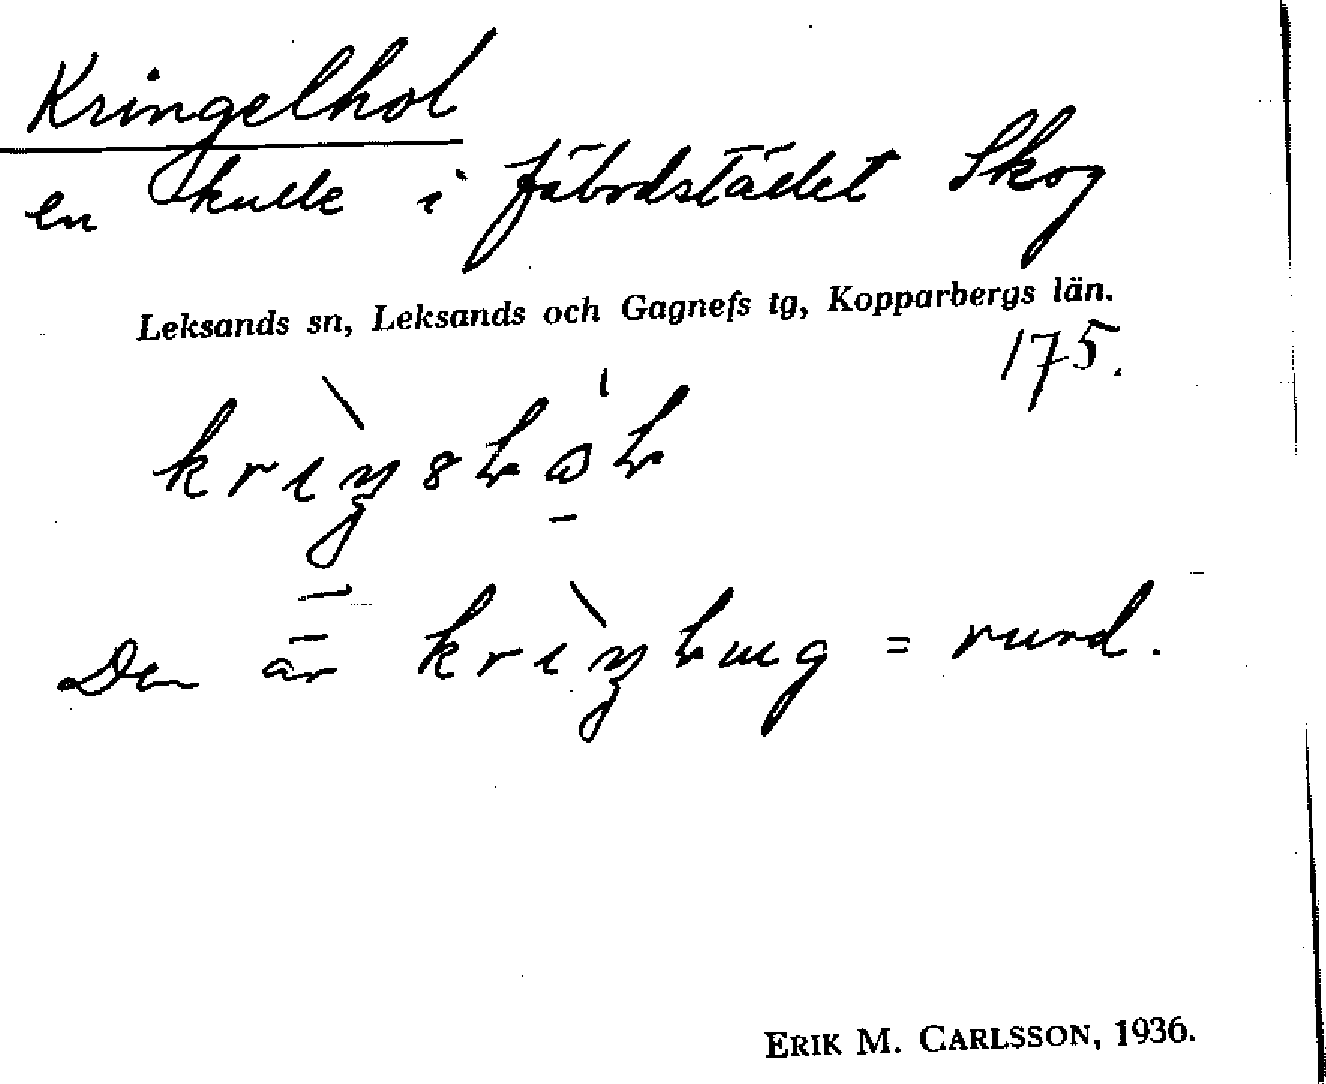 Kringelhol
en kulle i fäbodstället Skog
Leksands sn, Leksands och Gagnefs tg, Kopparbergs län.
175.
Den är = rund.
ERIK M. CARLSSON, 1936.